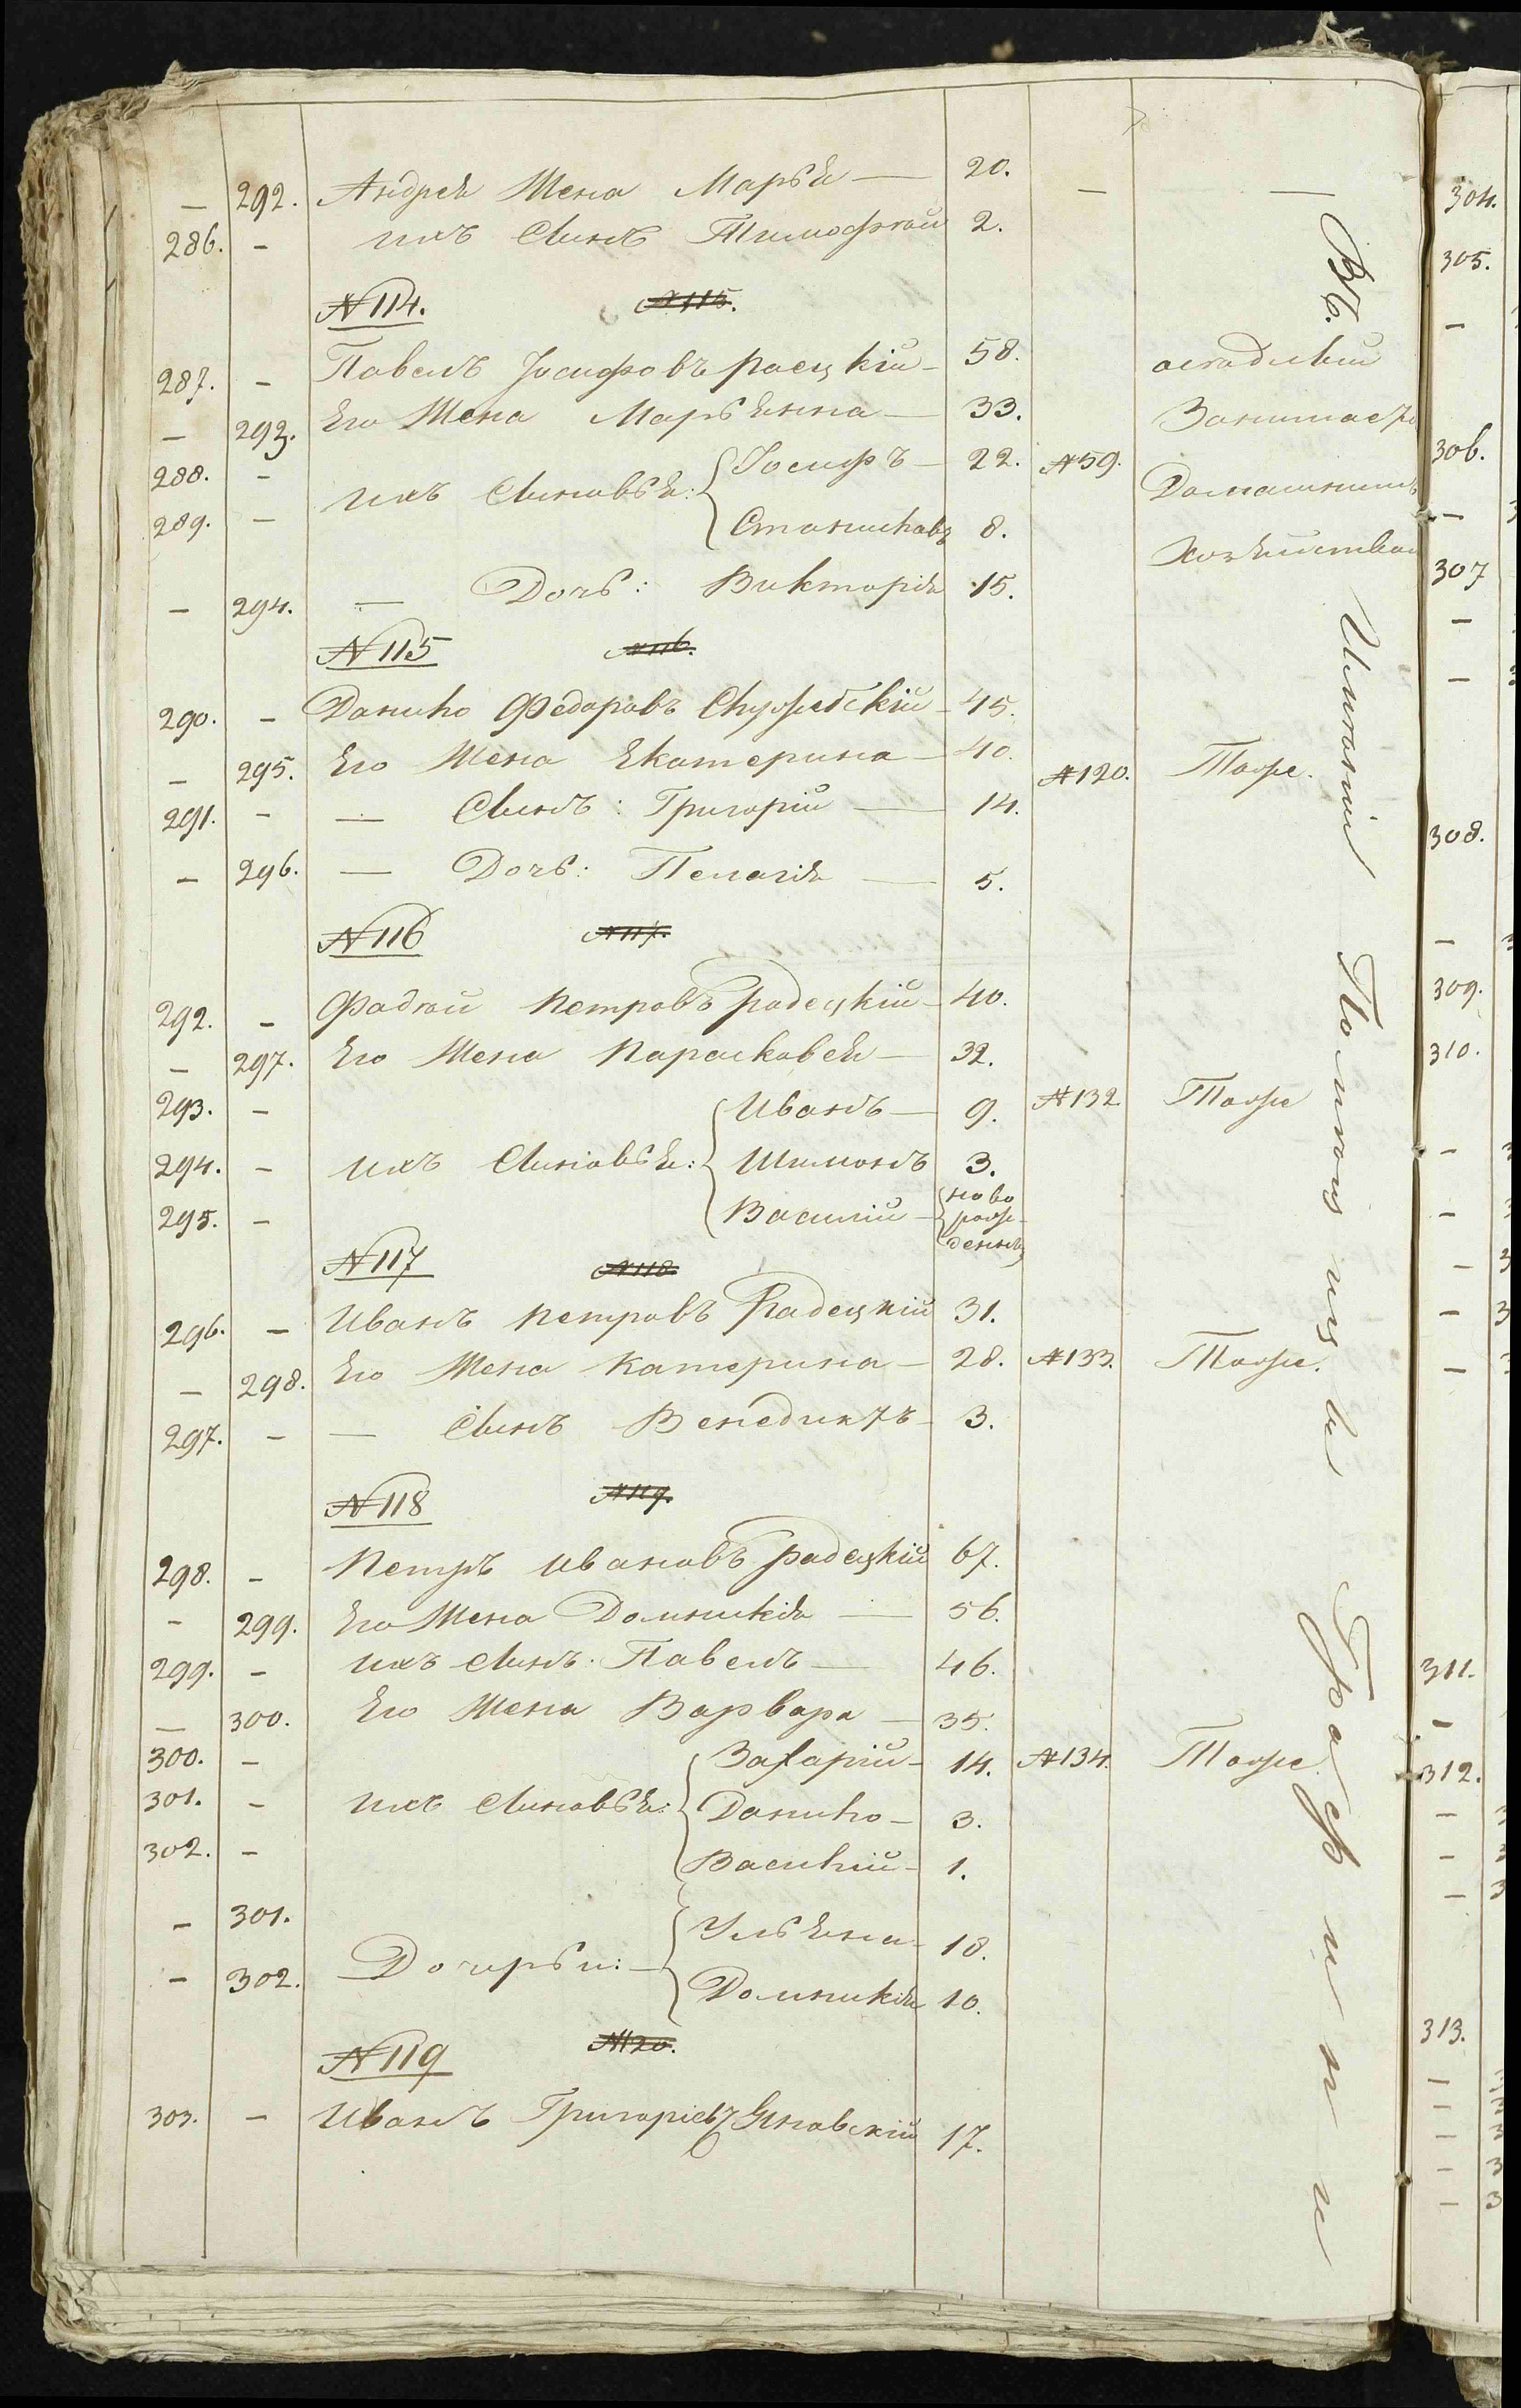 — 292. Андрея Жена Марья — 20. — —
286. – ихъ Сынъ Тимофѣй 2.
N 114. N 115.
287. – Павелъ Іосифовъ Раецкій – 58. осѣдлый
— 293. Его Жена Марьянна — 33. Занимается
288. – Іосифъ – 22. N 59.
ихъ Сыновья: Домашнимъ
289. – Станиславъ 8.
Хозяйствомъ
– 294. — Дочь: Викторія 15.
N 115 N 116.
290. – Данило Федоровъ – 45.
– 295. Его Жена Екатерина – 40. N 120. Тоже.
291. – — Сынъ: Григорій — 14.
– 296. — Дочь: Пелагія — 5.
N 116 N 117.
292. – Фадѣй Петровъ Радецкій – 40.
– 297. Его Жена Парасковея – 32.
293. – Иванъ – 9. N 132 Тоже
294. – ихъ Сыновья: Шимонъ 3.
295. – Василій – ново
рож-
денный
N 117 N 118.
296. – Иванъ Петровъ Радецкій 31.
– 298. Его Жена Катерина – 28. N 133. Тоже.
297. – — Сынъ Венедиктъ – 3.
N 118 N 119.
298. – Петръ Ивановъ Радецкій 67.
– 299. Его Жена Домникія — 56.
299. – ихъ Сынъ: Павелъ — 46.
— 300. Его Жена Варвара – 35.
300. – Захарій – 14. N 134. Тоже.
301. – ихъ Сыновья: Данило – 3.
302. – Василій – 1.
– 301. Ульяна – 18.
– 302. Дочерьи: – Домникія 10.
N 119 N 120.
303. – Иванъ Григорьевъ Яновскій 17.
Въ. Имѣніи Помѣщицы Графини
304.
305.
–
306.
–
307
–
–
308.
–
309.
310.
–
–
–
–
–
311.
–
312.
–
–
–
313.
–
–
–
–